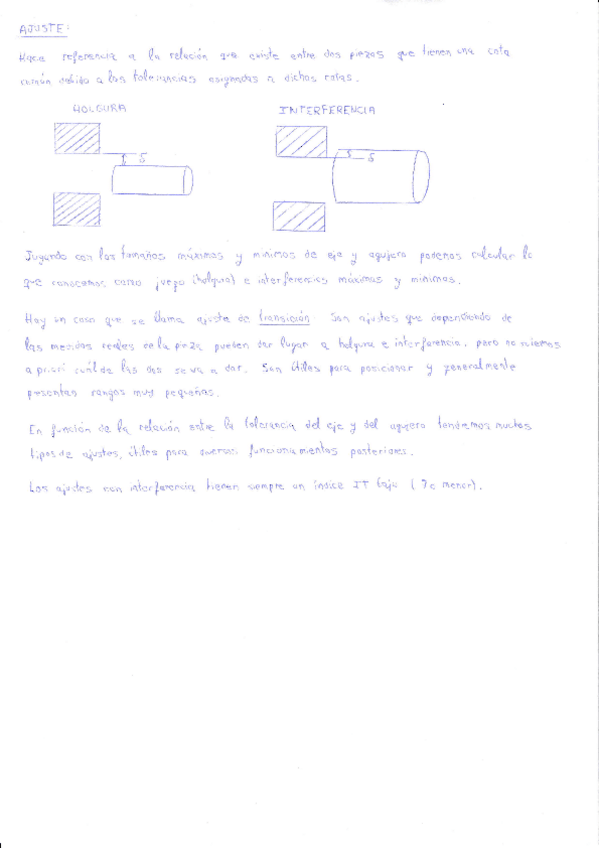 AJUSTE:
Hace referencia a la relación que existe entre dos piezas que tienen una cota
común debido a las tolerancias asignadas a dichas cotas.
HOLGURA
INTERFERENCIA
δ
δ
Jugando con los tamaños máximos y mínimos de eje y agujero podemos calcular lo
que conocemos como juego (holgura) e interferencias máximas y mínimas.
Hay un caso que se llama ajuste de transición. Son ajustes que dependiendo de
las medidas reales de la pieza pueden dar lugar a holgura e interferencia, pero no sabemos
a priori cuál de las dos se va a dar. Son útiles para posicionar y generalmente
presentan rangos muy pequeños.
En función de la relación entre la tolerancia del eje y del agujero tendremos muchos
tipos de ajustes, útiles para diversos funcionamientos posteriores.
Los ajustes con interferencia tienen siempre un índice IT bajo ( 7 o menor).